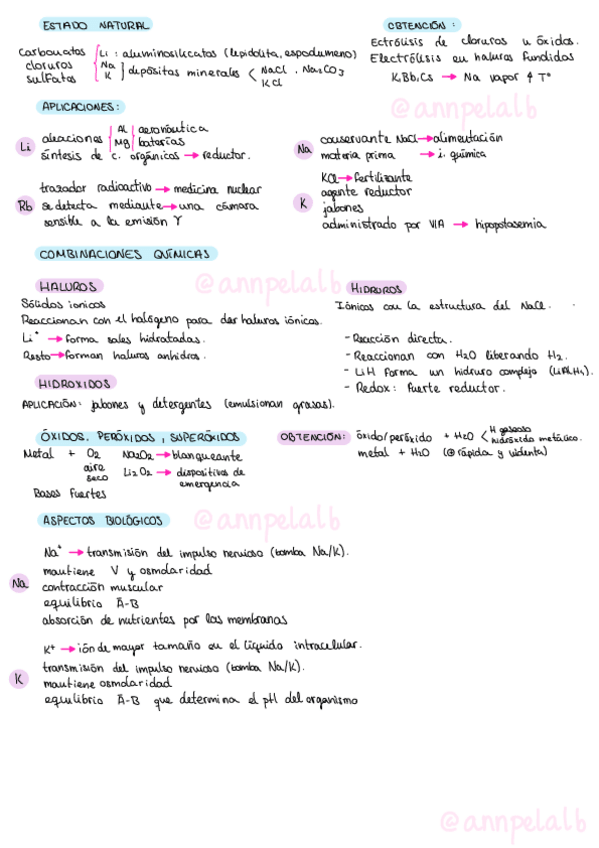 ESTADO NATURAL
Carbonatos
cloruros
sulfatos
Li : aluminosilicatos (lepidolita, espodumeno)
Na
K
depósitos minerales
NaCl . Na2CO3
KCl
OBTENCIÓN :
Ectrólisis de cloruros u óxidos.
Electrólisis en haluros fundidos
K, Bb, Cs → Na vapor ↑ Tª
@annpelalb
APLICACIONES:
Li
aleaciones
Al
Mg
aeronáutica
baterías
síntesis de c. orgánicos → reductor.
Na
conservante NaCl → alimentación
materia prima → i. química
Rb
trazador radioactivo → medicina nuclear
se detecta mediante → una cámara
sensible a la emisión γ
K
KCl → fertilizante
agente reductor
jabones
administrado por VIA → hipopotasemia
COMBINACIONES QUÍMICAS
@annpelalb
HALUROS
Sólidos ionicos
Reaccionan con el halógeno para dar haluros iónicos.
Li+ → forma sales hidratadas.
Resto → forman haluros anhidros.
HIDRUROS
Iónicos con la estructura del NaCl.
- Reacción directa.
- Reaccionan con H2O liberando H2.
- LiH forma un hidruro complejo (LiAlH4).
- Redox: fuerte reductor.
HIDROXIDOS
APLICACIÓN: jabones y detergentes (emulsionan grasas).
ÓXIDOS, PERÓXIDOS, SUPERÓXIDOS
Metal + O2
aire
seco
Bases fuertes
Na2O2 → blanqueante
Li2O2 → dispositivos de
emergencia
OBTENCIÓN:
óxido/peróxido + H2O
H gaseoso
hidróxido metálico.
metal + H2O (⊕ rápida y violenta)
ASPECTOS BIOLÓGICOS
@annpelalb
Na
Na+ → transmisión del impulso nervioso (bomba Na/K).
mantiene V y osmolaridad
contracción muscular
equilibrio A-B
absorción de nutrientes por las membranas
K
K+ → ión de mayor tamaño en el líquido intracelular.
transmisión del impulso nervioso (bomba Na/K).
mantiene osmolaridad
equilibrio A-B que determina el pH del organismo
@annpelalb